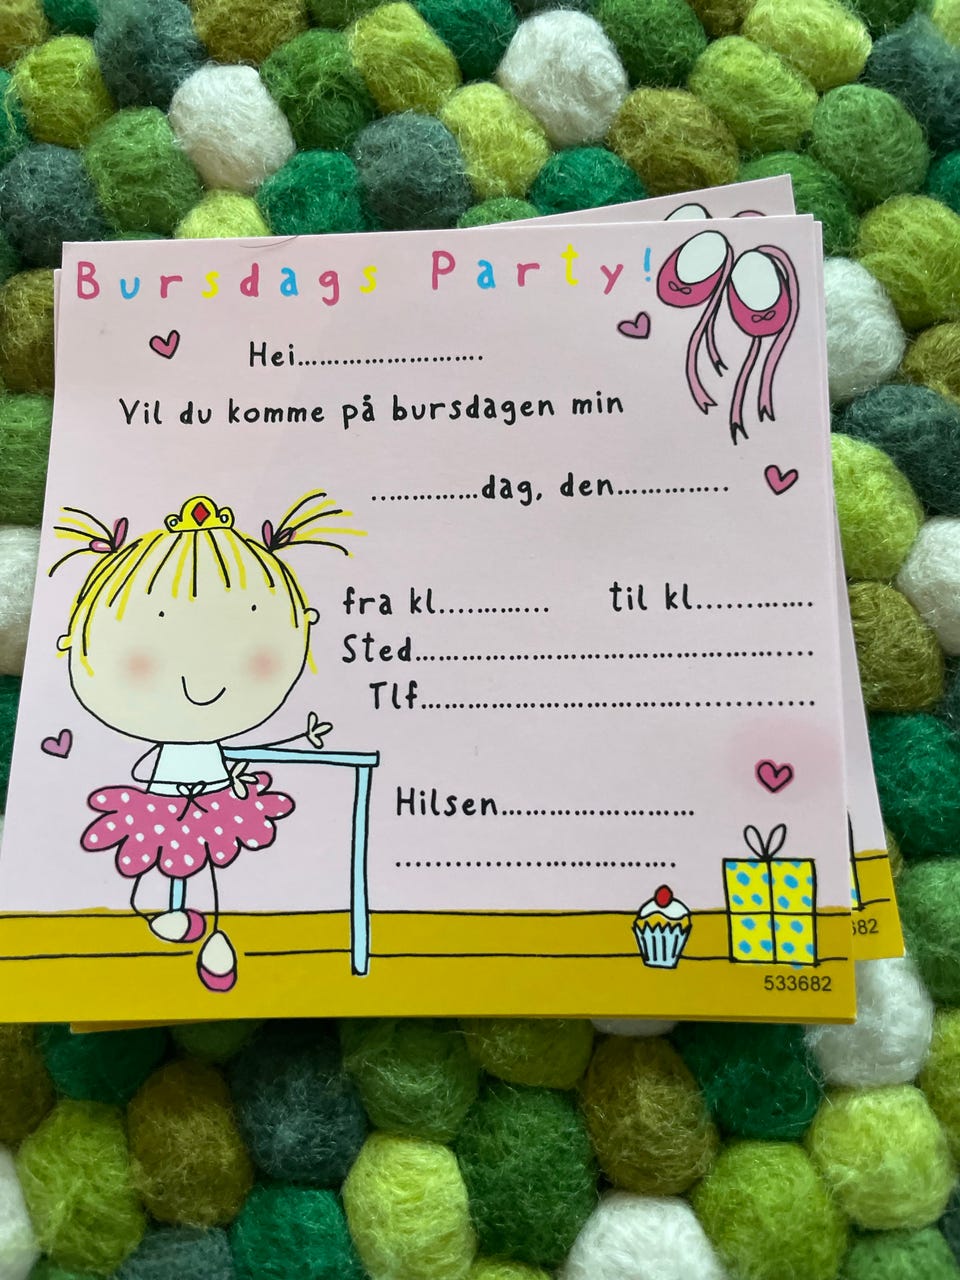 Bursdags Party!
Hei......................
Vil du komme på bursdagen min
.............dag, den.............
fra kl............. til kl.............
Sted................................................
Tlf................................................
Hilsen........................
..................................
682
533682